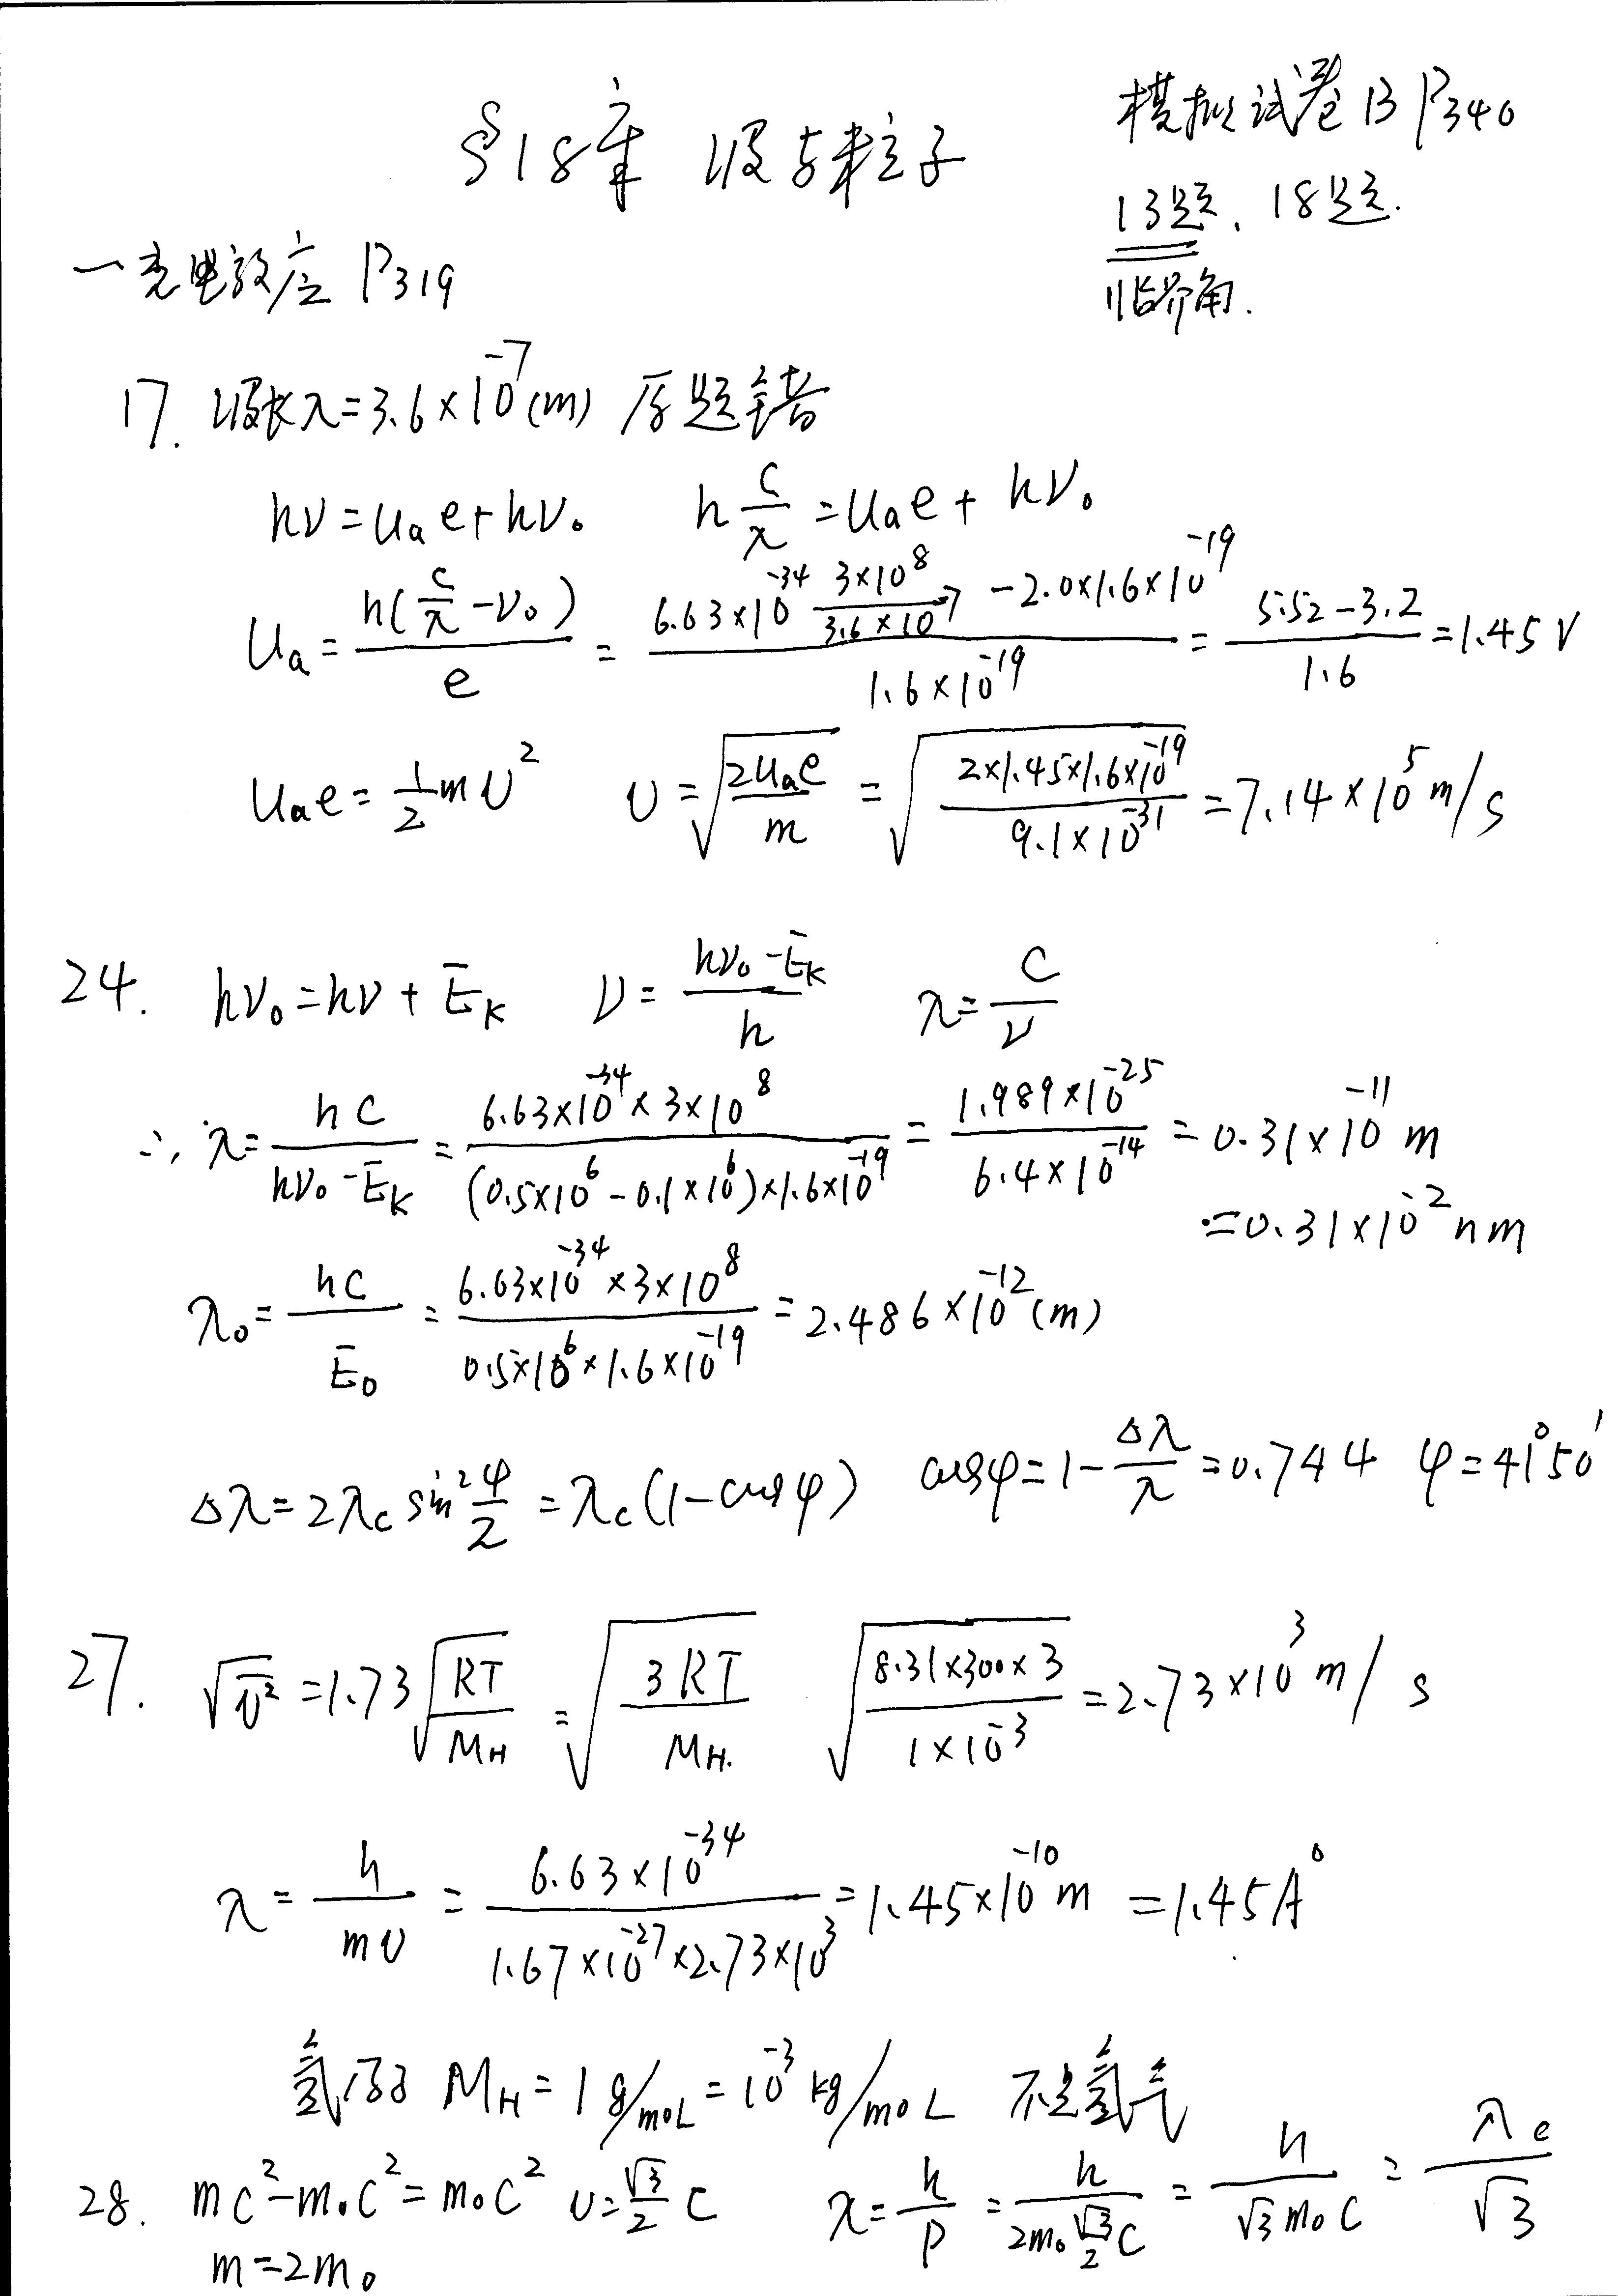 §18章 波与粒子
模拟试卷B P340
13题、18题.
临界角.
一光电效应 P319
17. 波长λ=3.6×10⁻⁷(m) 原题错
hν=Uₐe+hν₀ h c/λ =Uₐe+hν₀
Uₐ= h(c/λ -ν₀)/e = (6.63×10⁻³⁴ 3×10⁸/3.6×10⁻⁷ -2.0×1.6×10⁻¹⁹)/1.6×10⁻¹⁹ = (5.52-3.2)/1.6 =1.45V
Uₐe= 1/2 mυ² υ=√(2Uₐe/m) = √(2×1.45×1.6×10⁻¹⁹/9.1×10⁻³¹) =7.14×10⁵m/s
24. hν₀=hν+Ēₖ ν= (hν₀-Ēₖ)/h λ= c/ν
∴ λ= hc/(hν₀-Ēₖ) = 6.63×10⁻³⁴×3×10⁸/(0.5×10⁶-0.1×10⁶)×1.6×10⁻¹⁹ = 1.989×10⁻²⁵/6.4×10⁻¹⁴ =0.31×10⁻¹¹m
=0.31×10⁻²nm
λ₀= hc/Ē₀ = 6.63×10⁻³⁴×3×10⁸/0.5×10⁶×1.6×10⁻¹⁹ =2.486×10⁻¹²(m)
Δλ=2λc sin² φ/2 =λc(1-cosφ) cosφ=1- Δλ/λ =0.744 φ=41°50′
27. √ῡ² =1.73√(RT/M_H) = √(3RT/M_H.) √(8.31×300×3/1×10⁻³) =2.73×10³m/s
λ= h/mυ = 6.63×10⁻³⁴/1.67×10⁻²⁷×2.73×10³ =1.45×10⁻¹⁰m =1.45A°
氢原子 M_H=1g/moL=10⁻³kg/moL 不是氢气
28. mc²-m₀c²=m₀c² υ= √3/2 c λ= h/p = h/2m₀ √3/2 c = h/√3m₀c = λc/√3
m=2m₀